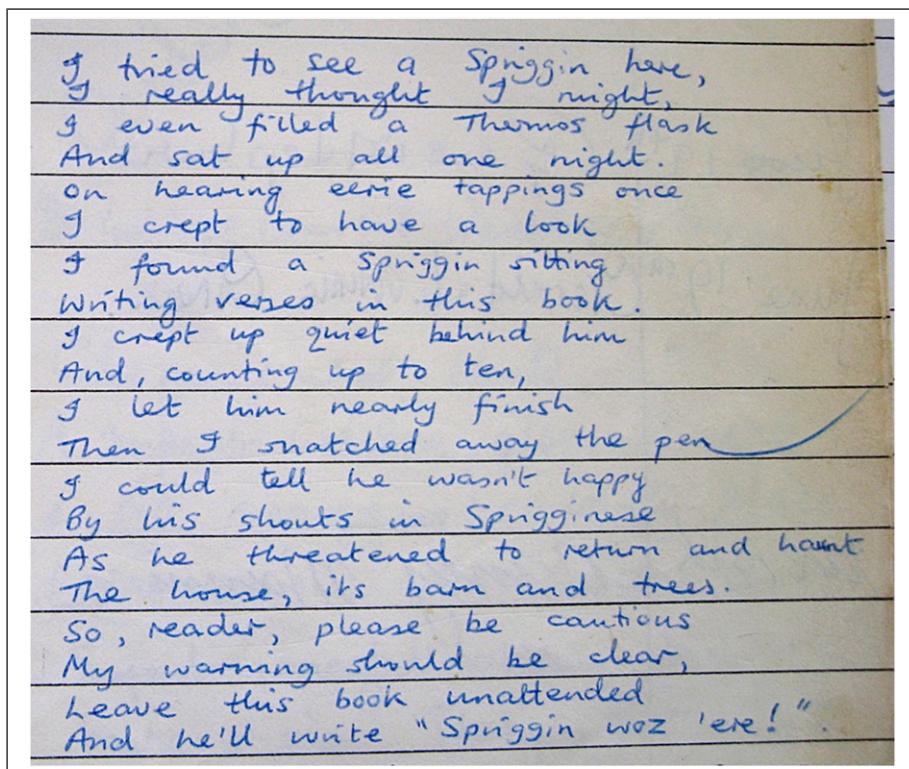 I tried to see a Spriggin here,
I really thought I might,
I even filled a Thermos flask
And sat up all one night.
On hearing eerie tappings once
I crept to have a look
I found a Spriggin sitting
Writing verses in this book.
I crept up quiet behind him
And, counting up to ten,
I let him nearly finish
Then I snatched away the pen
I could tell he wasn't happy
By his shouts in Sprigginese
As he threatened to return and haunt
The house, its barn and trees.
So, reader, please be cautious
My warning should be clear,
Leave this book unattended
And he'll write "Spriggin woz 'ere!".